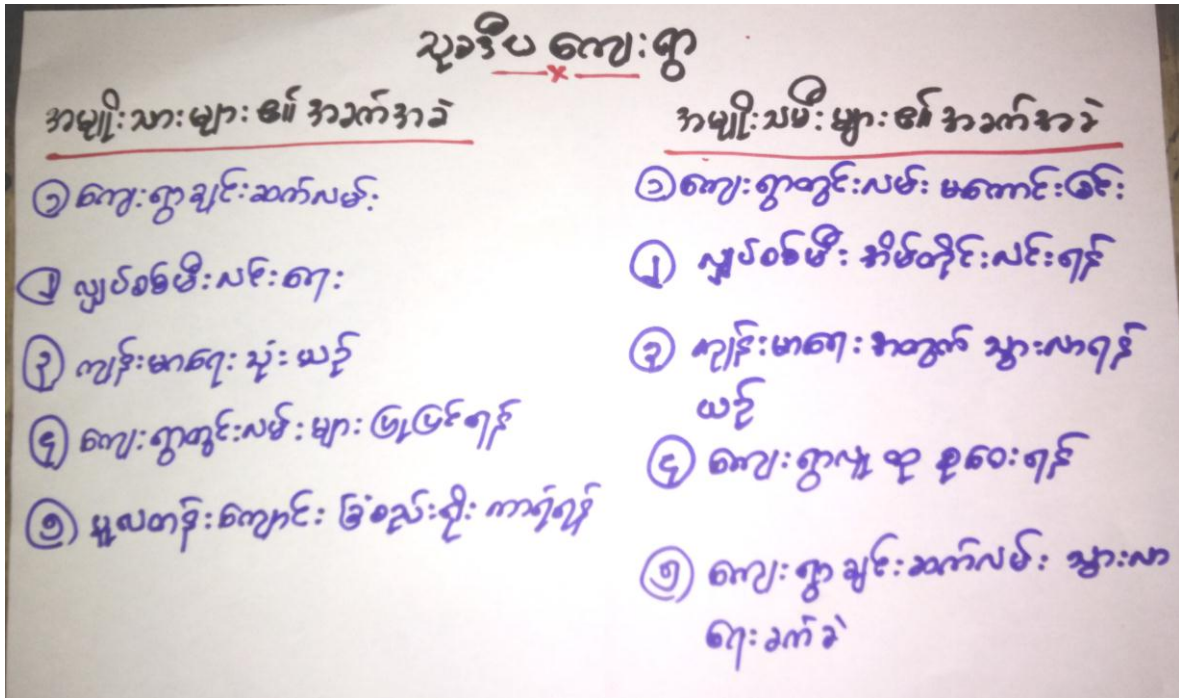 သုခဒီပ ကျေးရွာ
အမျိုးသားများ၏ အခက်အခဲ
၁ ကျေးရွာချင်းဆက်လမ်း
၂ လျှပ်စစ်မီးလင်းရေး
၃ ကျန်းမာရေး သုံး ယဉ်
၄ ကျေးရွာတွင်းလမ်းများ ပြုပြင်ရန်
၅ မူလတန်းကျောင်း ခြံစည်းရိုး ကာရံရန်
အမျိုးသမီးများ၏ အခက်အခဲ
၁ ကျေးရွာတွင်းလမ်း မကောင်းခြင်း
၂ လျှပ်စစ်မီး အိမ်တိုင်းလင်းရန်
၃ ကျန်းမာရေး အတွက် သွားလာရန်
ယဉ်
၄ ကျေးရွာလူ ထု စုဝေးရန်
၅ ကျေးရွာ ချင်းဆက်လမ်း သွားလာ
ရေး ခက်ခဲ